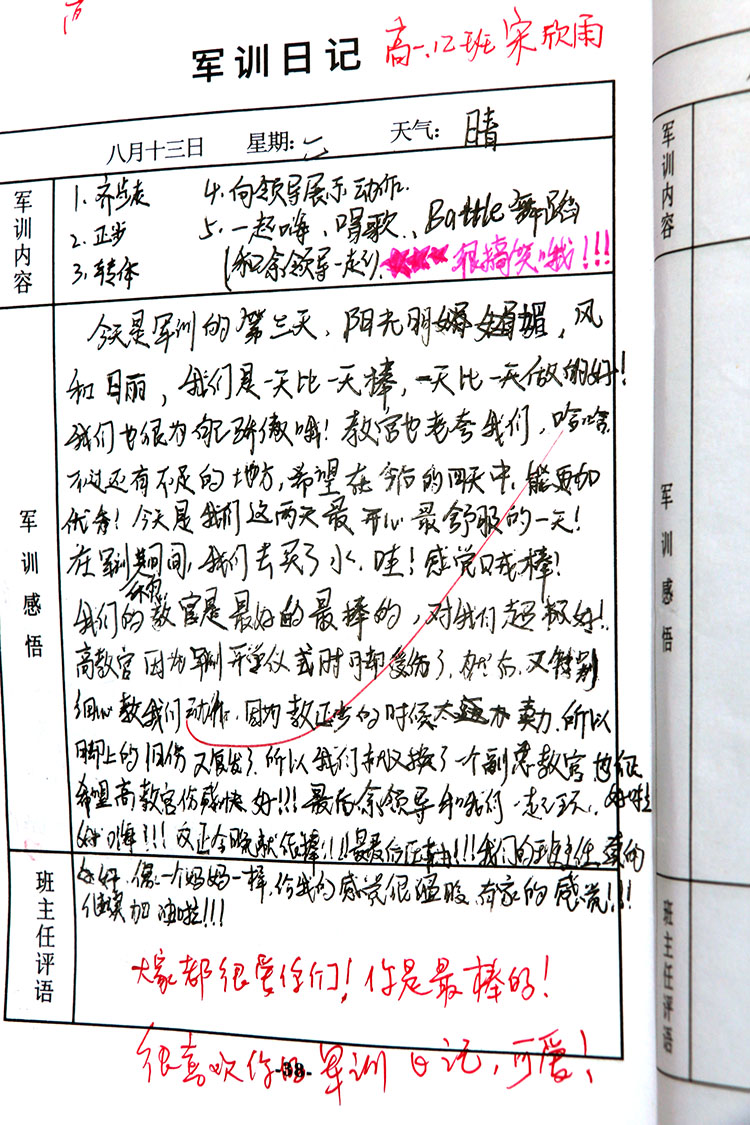 军训日记 高一.12班 宋欣雨
八月十三日 星期：三 天气：晴
军训内容
1. 齐步走 4. 向领导展示动作.
2. 正步 5. 一起嗨、唱歌、Battle 舞蹈
3. 转体 (和余领导一起). 很搞笑哦!!!
军训感悟
今天是军训的第三天，阳光明媚，风
和日丽，我们是一天比一天棒，一天比一天做的好！
我们也很为自己骄傲哦！教官也老夸我们，哈哈.
不过还有不足的地方，希望在今后的四天中，能更加
优秀！今天是我们这两天最开心最舒服的一天！
在军训期间，我们去买了水，哇！感觉 棒！
我们的教官是最好的最棒的，对我们超极好！
高教官因为军训开营仪式时 受伤了， 又特别
细心教我们动作，因为教正步的时候太 卖力，所以
脚上的旧伤又复发了，所以我们又换了一个副 教官
希望高教官伤 快好!!! 最后余领导和我们一起玩，
好嗨!!! 反正今晚 很棒!!! 我们的班主任真的
好好，像一个妈妈一样，给我的感觉很温暖，有家的感觉!!!
继续加油啦!!!
班主任评语
大家都很爱你们！你是最棒的！
很喜欢你的军训日记，可爱！
-38-
军训内容
军训感悟
班主任评语